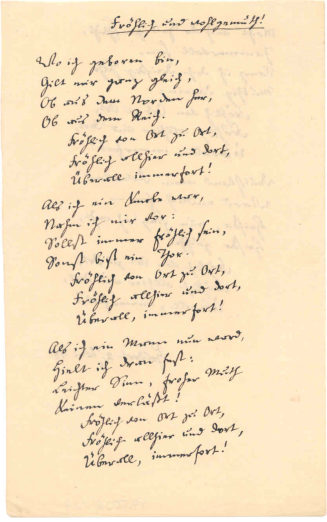 Fröhlich und wohlgemuth!
Wo ich geboren bin,
Gilt mir ganz gleich,
Ob aus dem Norden her,
Ob aus dem Reich.
Fröhlich von Ort zu Ort,
Fröhlich allhier und dort,
Überall immerfort!
Als ich ein Knabe war,
Nahm ich mir vor:
Sollst immer fröhlich sein,
Sonst bist ein Thor.
Fröhlich von Ort zu Ort,
Fröhlich allhier und dort,
Überall, immerfort!
Als ich ein Mann nun ward,
Hielt ich dran fest:
Leichter Sinn, froher Muth
Keinen verläßt!
Fröhlich von Ort zu Ort,
Fröhlich allhier und dort,
Überall, immerfort!